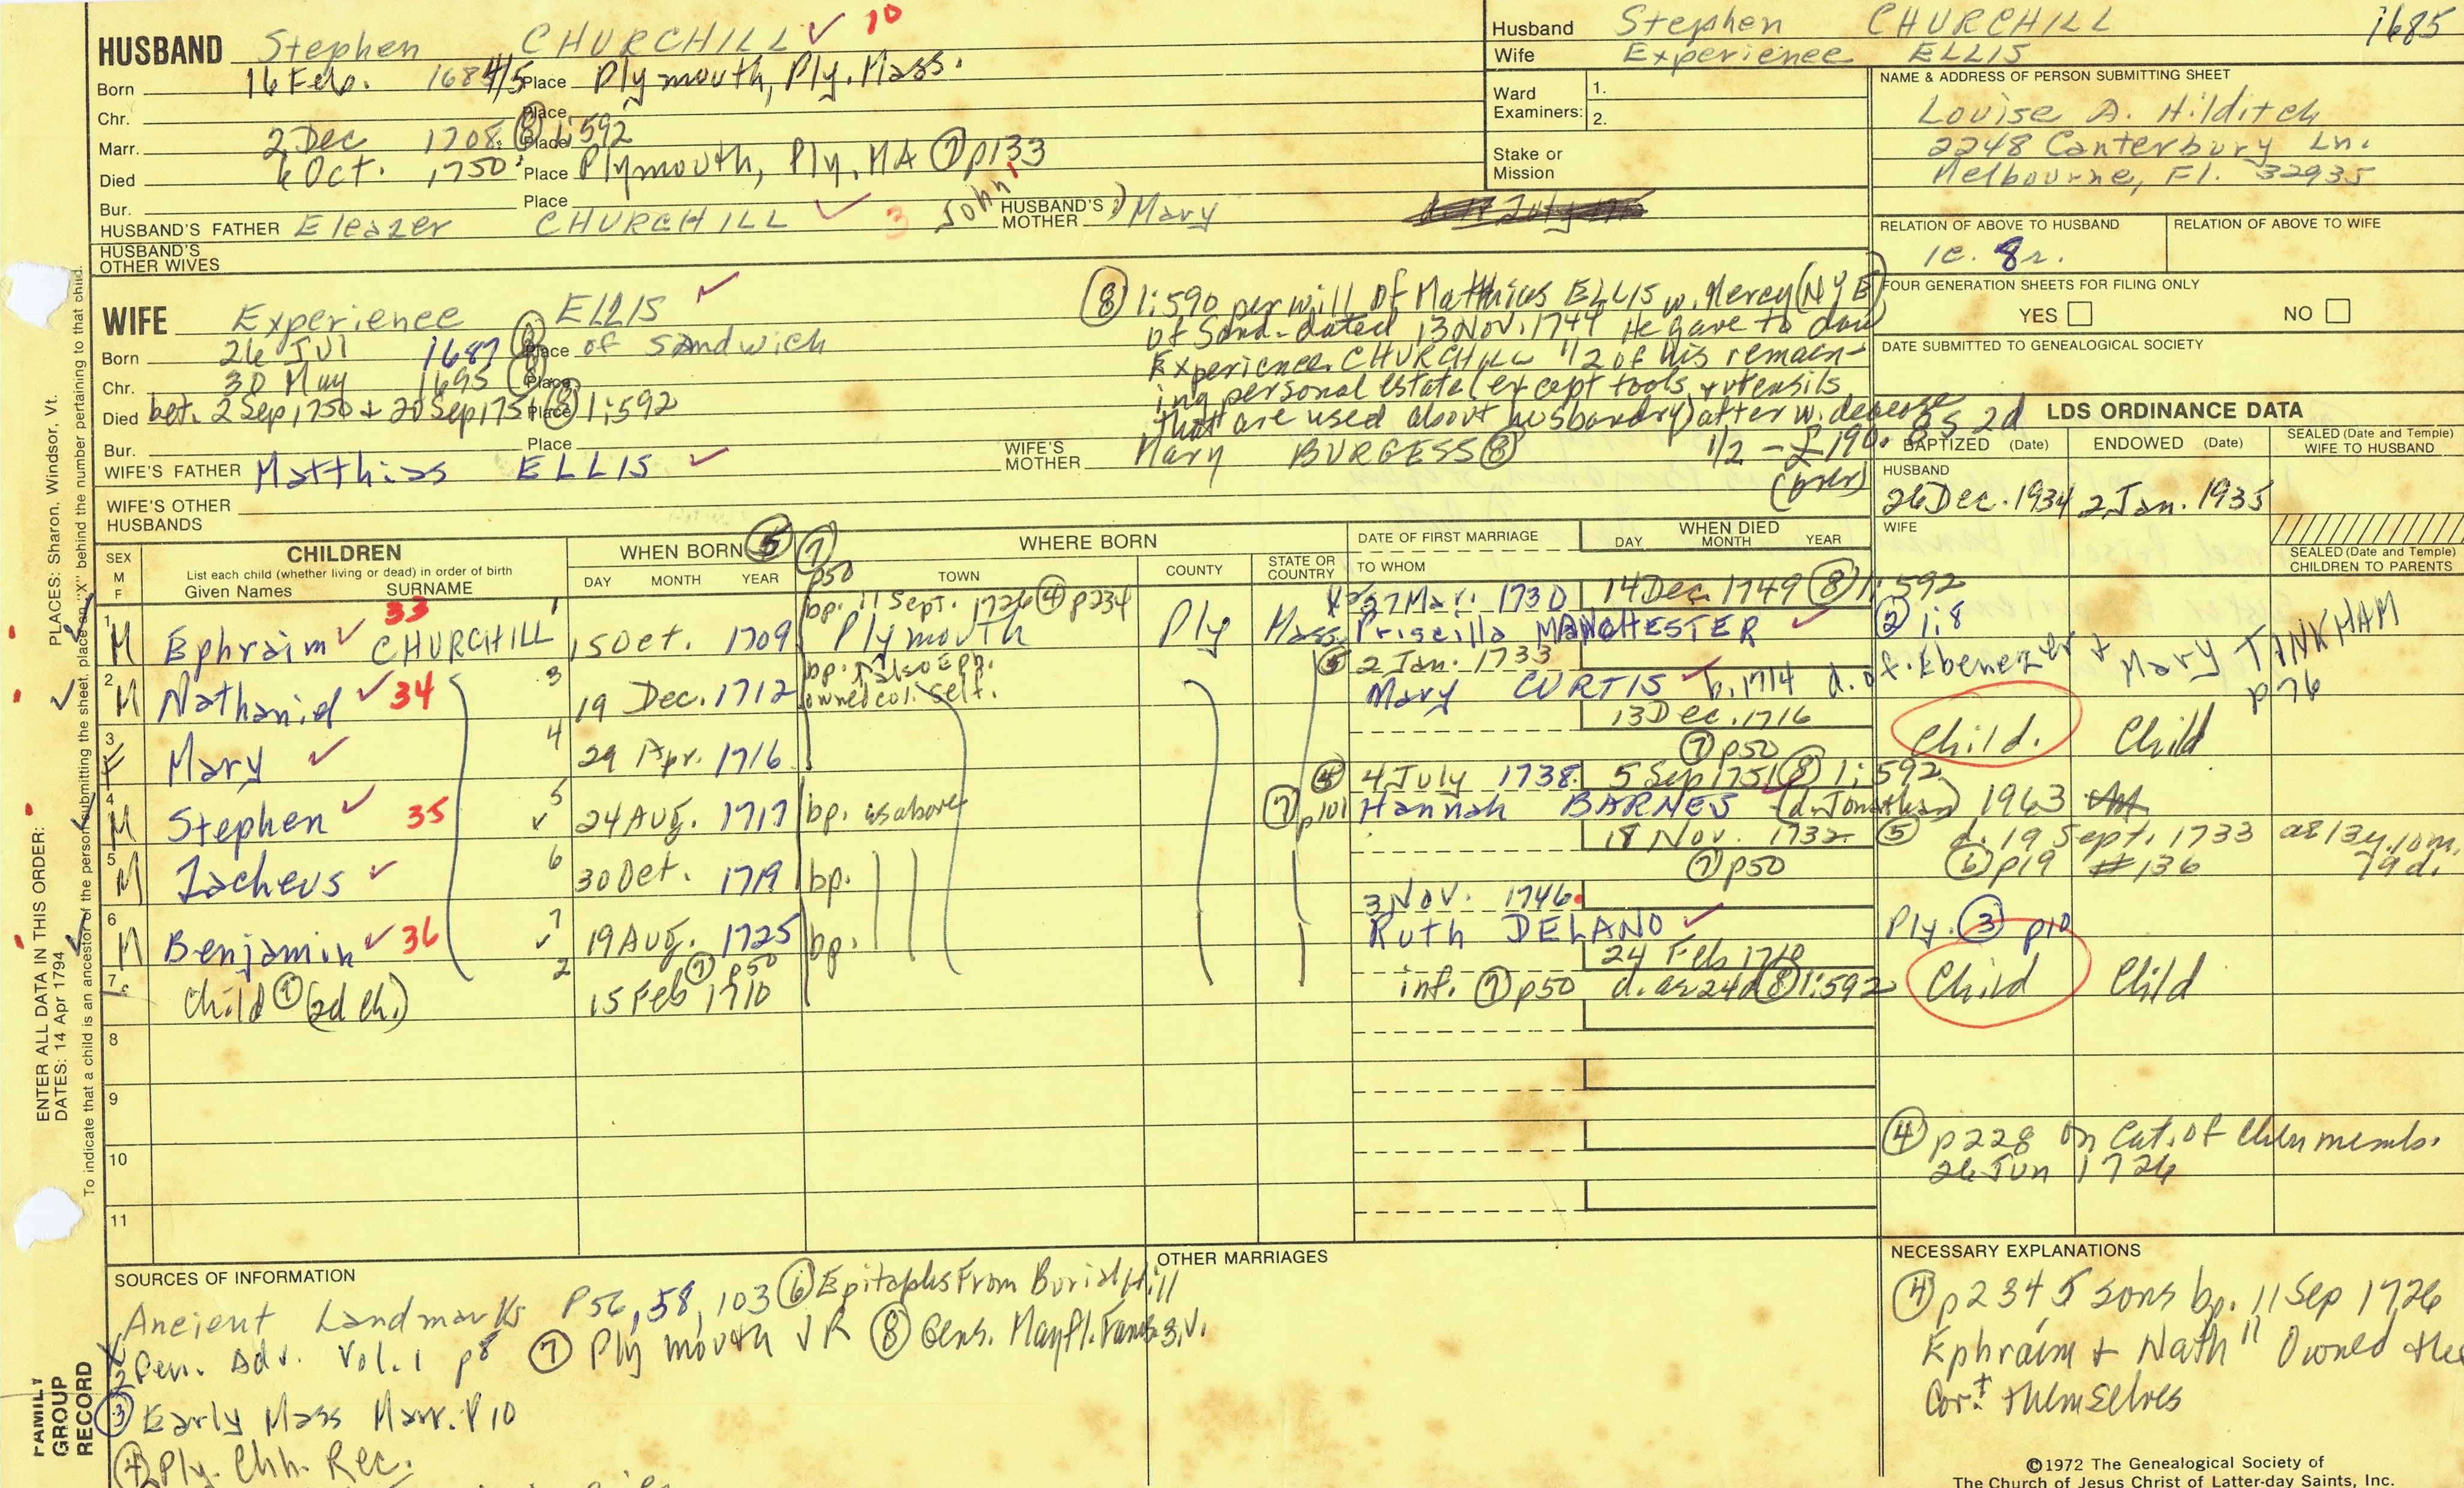 HUSBAND Stephen CHURCHILL ✓ 10
Born 16 Feb. 1684/5 Place Plymouth, Ply. Mass.
Chr. Place
Marr. 2 Dec 1708 Place ⑧ 1:592
Died 6 Oct. 1750 Place Plymouth, Ply, MA ⑦ p133
Bur. Place
HUSBAND'S FATHER Eleazer CHURCHILL ✓ 3 John HUSBAND'S MOTHER Mary
HUSBAND'S OTHER WIVES
Husband Stephen CHURCHILL 1685
Wife Experience ELLIS
Ward Examiners: 1.
2.
Stake or Mission
NAME & ADDRESS OF PERSON SUBMITTING SHEET
Louise A. Hilditch
2248 Canterbury Ln.
Melbourne, Fl. 32935
RELATION OF ABOVE TO HUSBAND RELATION OF ABOVE TO WIFE
1c. 8r.
FOUR GENERATION SHEETS FOR FILING ONLY
YES NO
DATE SUBMITTED TO GENEALOGICAL SOCIETY
WIFE Experience ELLIS ✓
Born 26 Jul 1687 ⑧ Place of Sandwich
Chr. 30 May 1695 ⑧ Place
Died bet. 2 Sep 1750 + 20 Sep 1751 Place ⑧ 1:592
Bur. Place
WIFE'S FATHER Matthias ELLIS ✓ WIFE'S MOTHER Mary BURGESS ⑧
WIFE'S OTHER HUSBANDS
⑧ 1:590 per will of Matthias ELLIS w. Mercy (NYE)
of Sand. dated 13 Nov. 1744 He gave to dau
Experience CHURCHILL 1/2 of his remain-
ing personal estate (except tools & utensils
that are used about husbandry) after w. decease
1/2 - £190. 8s 2d
(over)
LDS ORDINANCE DATA
BAPTIZED (Date) ENDOWED (Date) SEALED (Date and Temple) WIFE TO HUSBAND
HUSBAND
26 Dec. 1934 2 Jan. 1935
WIFE
SEALED (Date and Temple) CHILDREN TO PARENTS
SEX M F
CHILDREN
List each child (whether living or dead) in order of birth
Given Names SURNAME
WHEN BORN ⑤
DAY MONTH YEAR
⑦ p50
WHERE BORN
TOWN COUNTY STATE OR COUNTRY
DATE OF FIRST MARRIAGE
TO WHOM
WHEN DIED
DAY MONTH YEAR
bp. 11 Sept. 1726 ④ p234 Mar. 1730 14 Dec. 1749 ⑧ 1:592
1 M Ephraim ✓ 33 CHURCHILL 1 15 Oct. 1709 Plymouth Ply Mass. Priscilla MANCHESTER ✓ ② 1:8
bp. also Eph. owned cov. self. ⑤ 2 Jan. 1733
2 M Nathaniel ✓ 34 3 19 Dec. 1712 Mary CURTIS ✓ b. 1714 d. of Ebenezer + Mary TINKHAM p76
13 Dec. 1716
3 F Mary ✓ 4 29 Apr. 1716 ⑦ p50 Child. Child
4 July 1738 5 Sep 1751 ⑧ 1:592
4 M Stephen ✓ 35 5 ✓ 24 Aug. 1717 bp. as above ⑦ p101 Hannah BARNES (d. Jonathan) 1963
18 Nov. 1732 ⑤ d. 19 Sept. 1733 ae 13y. 10m. 19d.
5 M Zacheus ✓ 6 30 Oct. 1719 bp. ⑦ p50 ⑥ p19 #136
3 Nov. 1746
6 M Benjamin ✓ 36 7 ✓ 19 Aug. 1725 bp. Ruth DELANO ✓ Ply. ③ p10
24 Feb 1710
7 c Child ⑦ (2d ch.) 2 15 Feb 1710 ⑦ p50 inf. ⑦ p50 d. ae 24d ⑧ 1:592 Child Child
8
9
10
11
④ p228 on Cat. of Chh memb.
26 Jun 1726
SOURCES OF INFORMATION
Ancient Landmarks P56, 58, 103 ⑥ Epitaphs From Burial Hill
2 Gen. Adv. Vol. 1 p8 ⑦ Plymouth VR ⑧ Gens. Mayfl. Fams. 3 V.
③ Early Mass Marr. P10
④ Ply. Chh. Rec.
OTHER MARRIAGES
NECESSARY EXPLANATIONS
④ p234 5 sons bp. 11 Sep 1726
Ephraim + Nathll Owned the
Covt themselves
©1972 The Genealogical Society of
The Church of Jesus Christ of Latter-day Saints, Inc.
PLACES: Sharon, Windsor, Vt.
ENTER ALL DATA IN THIS ORDER:
DATES: 14 Apr 1794
To indicate that a child is an ancestor of the person submitting the sheet, place an "X" behind the number pertaining to that child.
FAMILY GROUP RECORD